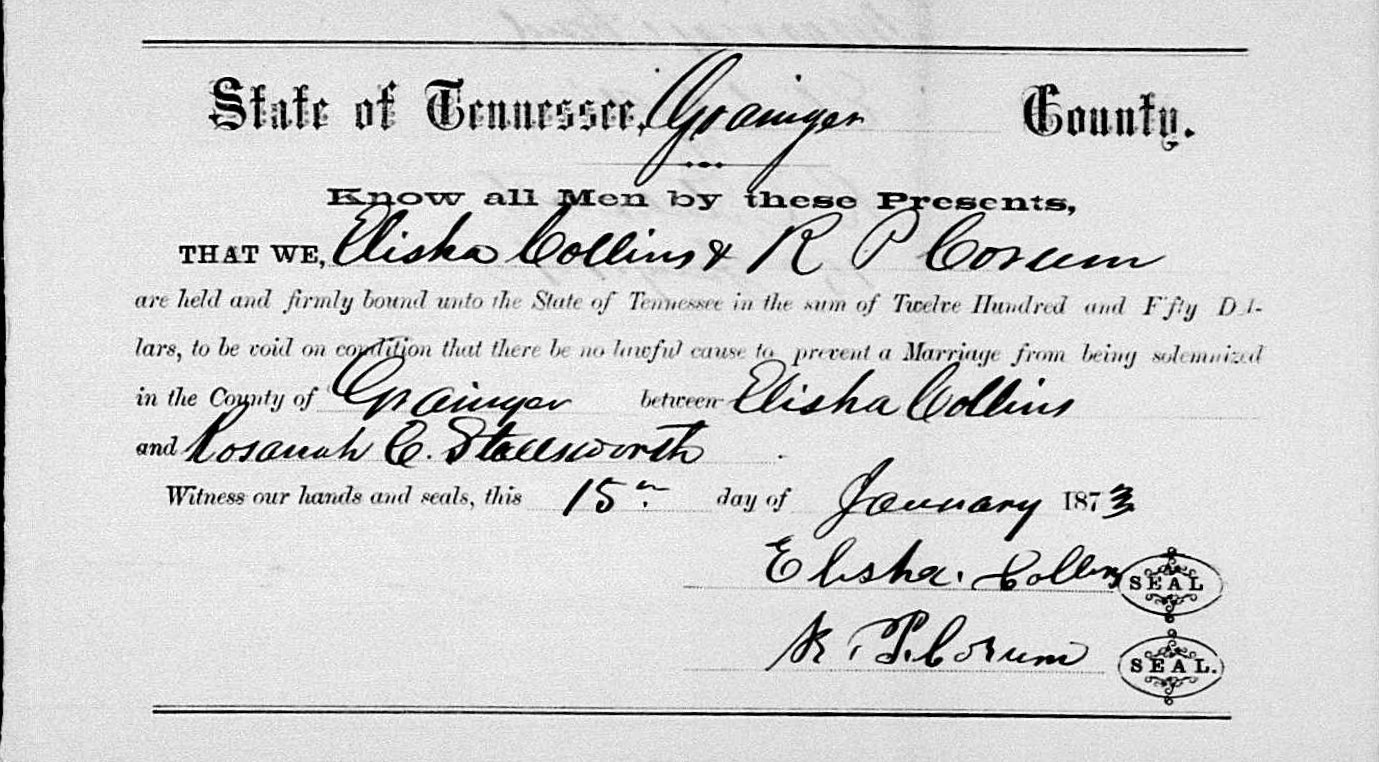 State of Tennessee, Grainger County.
Know all Men by these Presents,
THAT WE, Elisha Collins & R P Corum
are held and firmly bound unto the State of Tennessee in the sum of Twelve Hundred and Fifty Dol-
lars, to be void on condition that there be no lawful cause to prevent a Marriage from being solemnized
in the County of Grainger between Elisha Collins
and Rosanah C. Stallsworth
Witness our hands and seals, this 15th day of January 1873
Elisha. Collins SEAL
R. P. Corum SEAL.